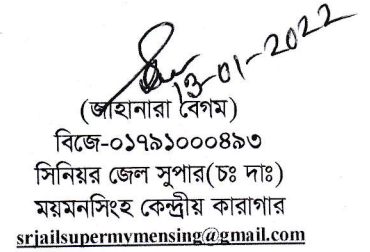 13-01-2022
(জাহানারা বেগম)
বিজে-০১৭৯১০০০৪৯৩
সিনিয়র জেল সুপার(চঃ দাঃ)
ময়মনসিংহ কেন্দ্রীয় কারাগার
srjailsupermymensing@gmail.com